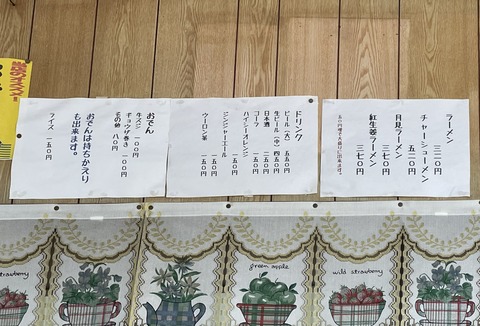 ラーメン 三二〇円
チャーシューメン 五二〇円
月見ラーメン 三七〇円
紅生姜ラーメン 三七〇円
ドリンク
ビール(大) 五五〇円
生ビール(中) 四五〇円
日本酒 二五〇円
コーラ 一五〇円
ハイシーオレンジ 一五〇円
ジンジャーエール 一五〇円
ウーロン茶 一五〇円
おでん
牛スジ 一〇〇円
ギョウザ巻き 一〇〇円
その他 八〇円
おでんは持ちかえり
も出来ます。
ライス 一五〇円
strawberry
green apple
wild strawberry